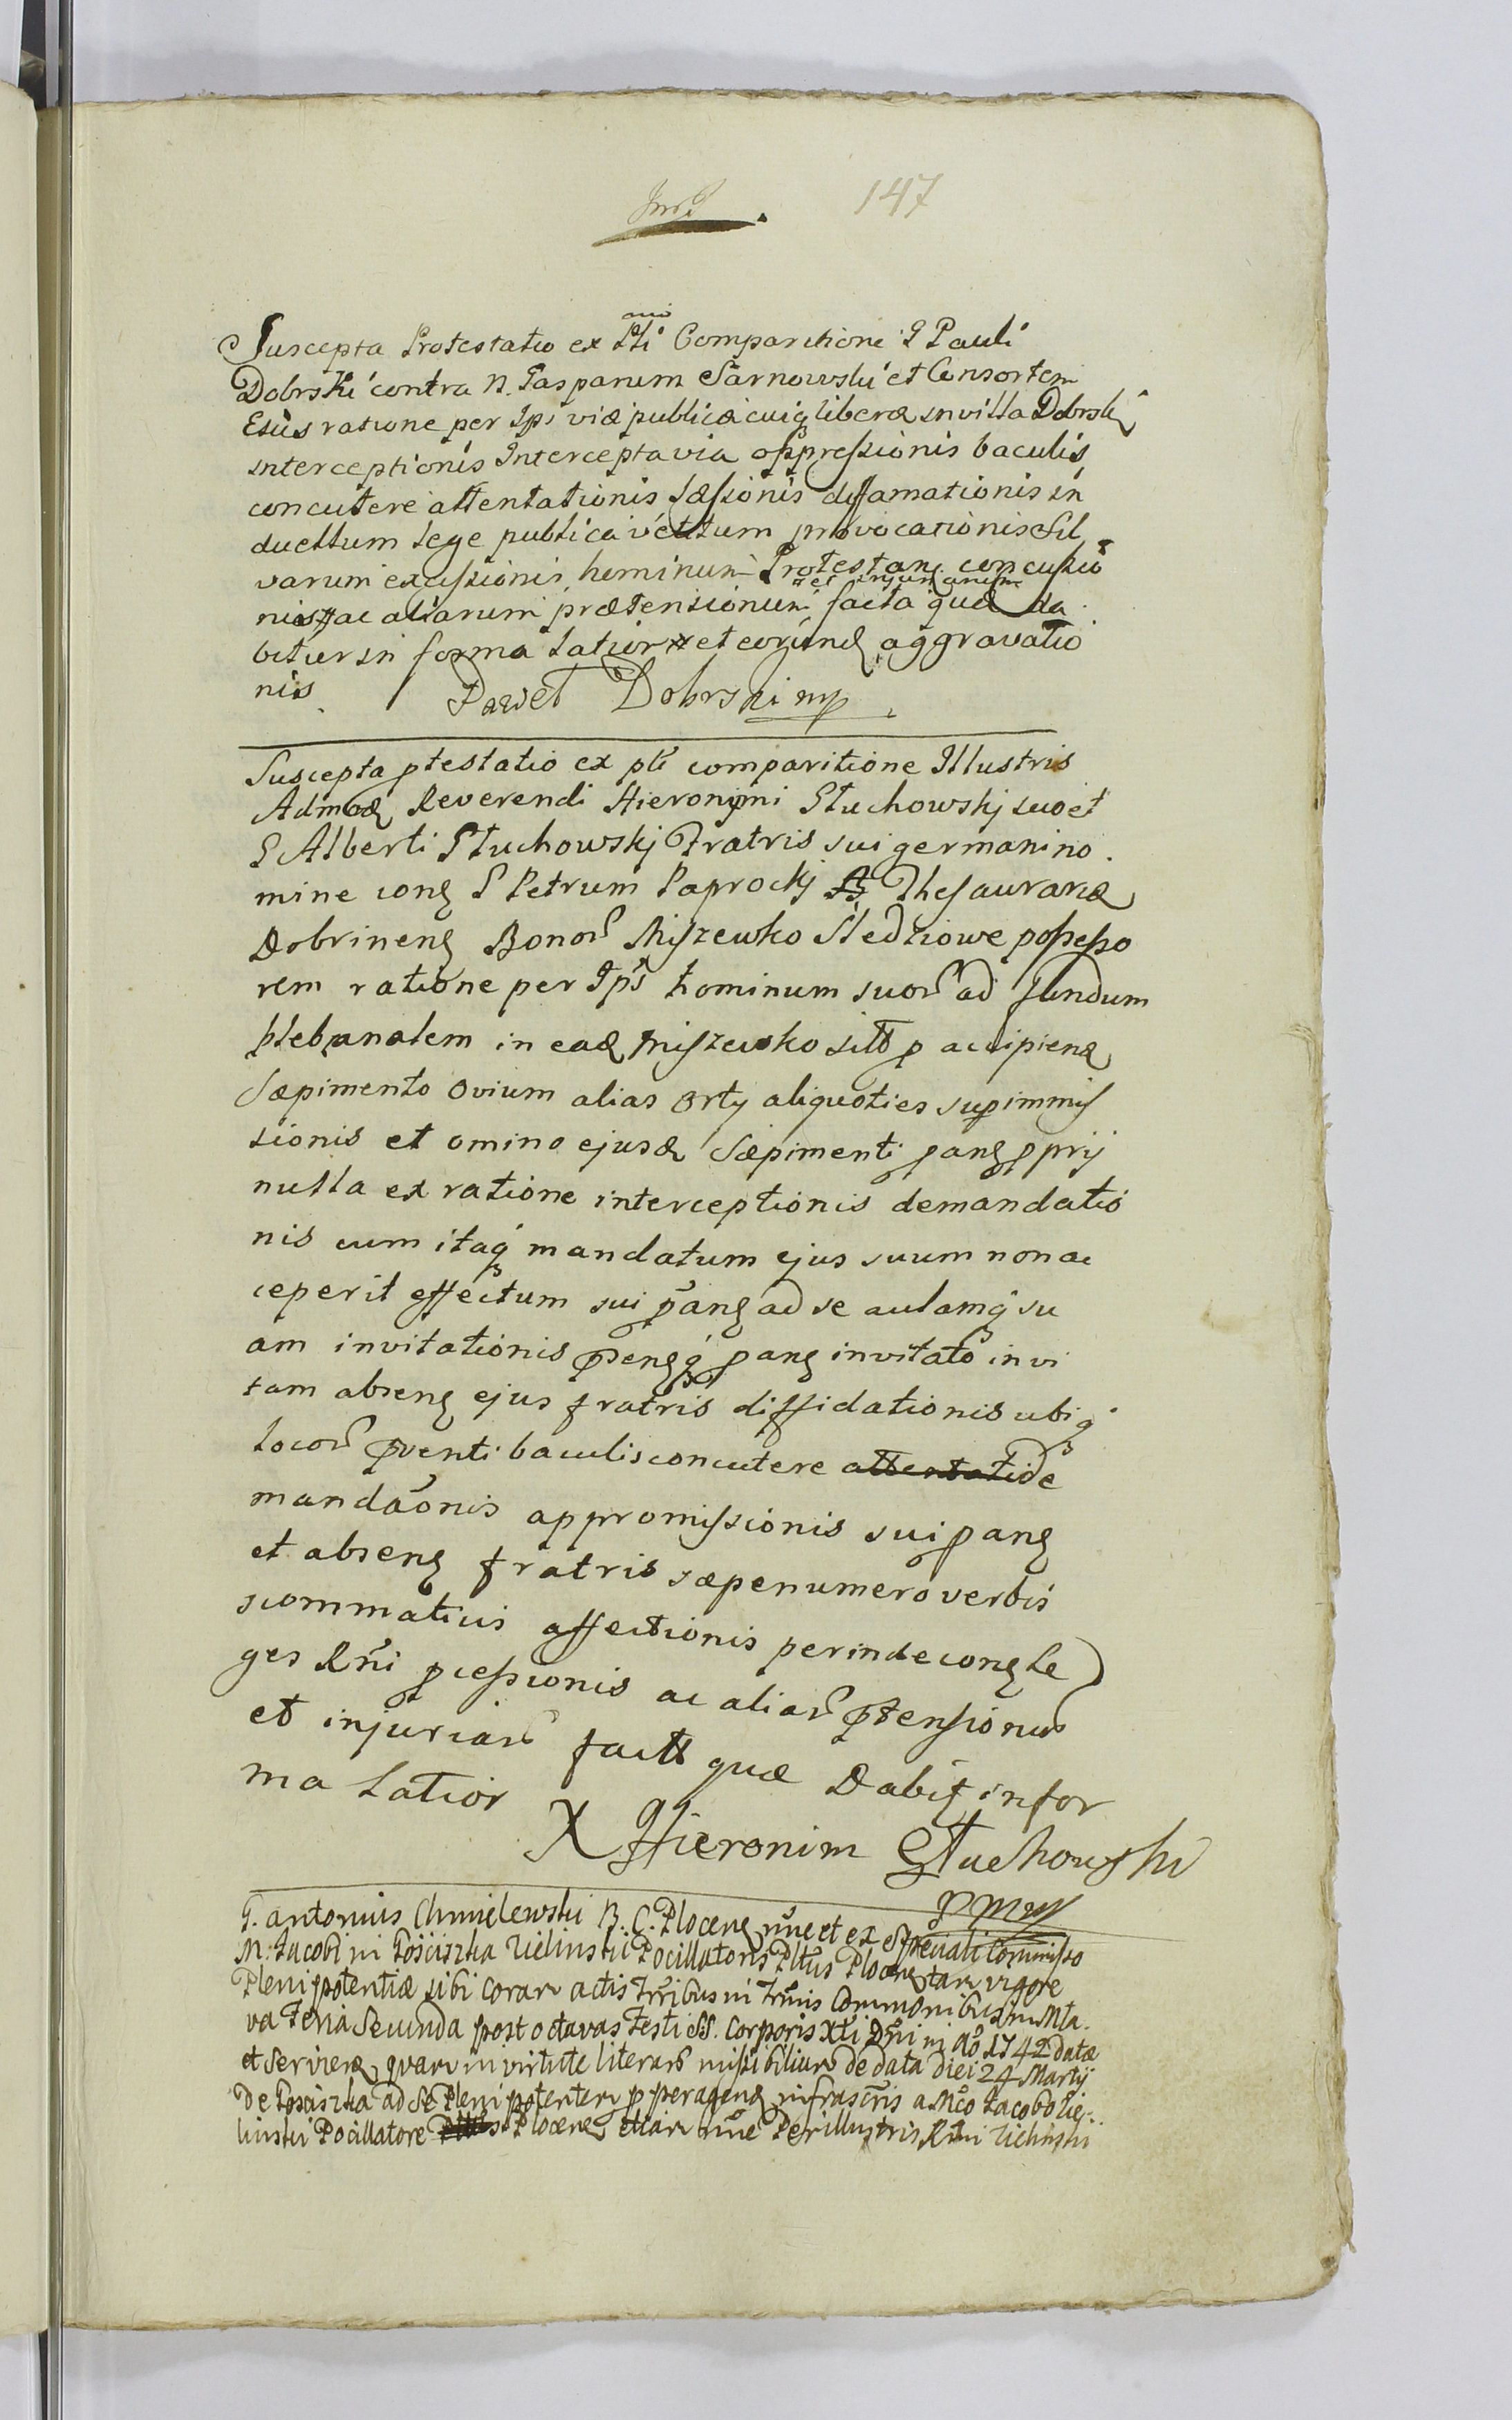 147
Suscepta Protestatio ex Pli Comparitione G Pauli
Dobrski contra N. Gasparum Sarnowski et Consortem
Ejus ratione per Ips viæ publicæ cuiq liberæ in villa Dobrsk
interceptionis Intercepta via oppressionis baculis
concutere attentationis læsionis diffamationis in
duellum lege publica vetitum provocationis Sil
varum excissionis hominum Protestan concussio
nis et injuriarum
ac aliarum prætensionum facta quæ da
bitur in forma latior et eorund aggravatio
nis Paweł Dobrski mp
Suscepta ptestatio ex pli comparitione Illustris
Admod Reverendi Hieronymi Słuchowskj suo et
G Alberti Słuchowskj Fratris sui germani no
mine con G Petrum Paprockj Thesaurarid
Dobrinen Bonor Miszewko Sledziowe possesso
rem ratione per Ips hominum suor ad fundum
plebanalem in ead Miszewko sitt p accipiend
Sæpimento ovium alias Orty aliquoties supimmis
sionis et omino ejusd Sæpimenti pan pprij
nulla ex ratione interceptionis demandatio
nis cum itaq mandatum ejus suum non ac
ceperit effectum sui pan ad se aulamq su
am invitationis pensq pan invitato in vi
tam absen ejus fratris diffidationis ubiq
locor pventi baculis concutere attentati de
mandaonis appromissionis sui pan
et absen fratris sæpenumero verbis
scommaticis affectionis perinde con le
ges Rni pcessionis ac aliar ptensionum
et injuriar factt quæ Dabit in for
ma Latior
X Hieronim Słuchowski
mp
G. Antonius Chmielewski B. C. Plocen nne et ex Speciali Commisso
M. Jacobi in Kosciszka Zielinski Pocillatoris Pltus Plocen tam vigore
Plenipotentiæ sibi coram actis Trribus in Trmis Commonibus in Mla
va Feria Secunda post octavas Festi SS. Corporis Xti Dni in Ao 1742 datæ
et Servien, quam in virtute literar missibilium de data diei 24 Martij
de Kosciszka ad se Plenipotentem p peragend infrascris a Mco Jacobo Zie
linski Pocillatore Pltus Plocen etiam nne Perillustris Rdni Zielinski